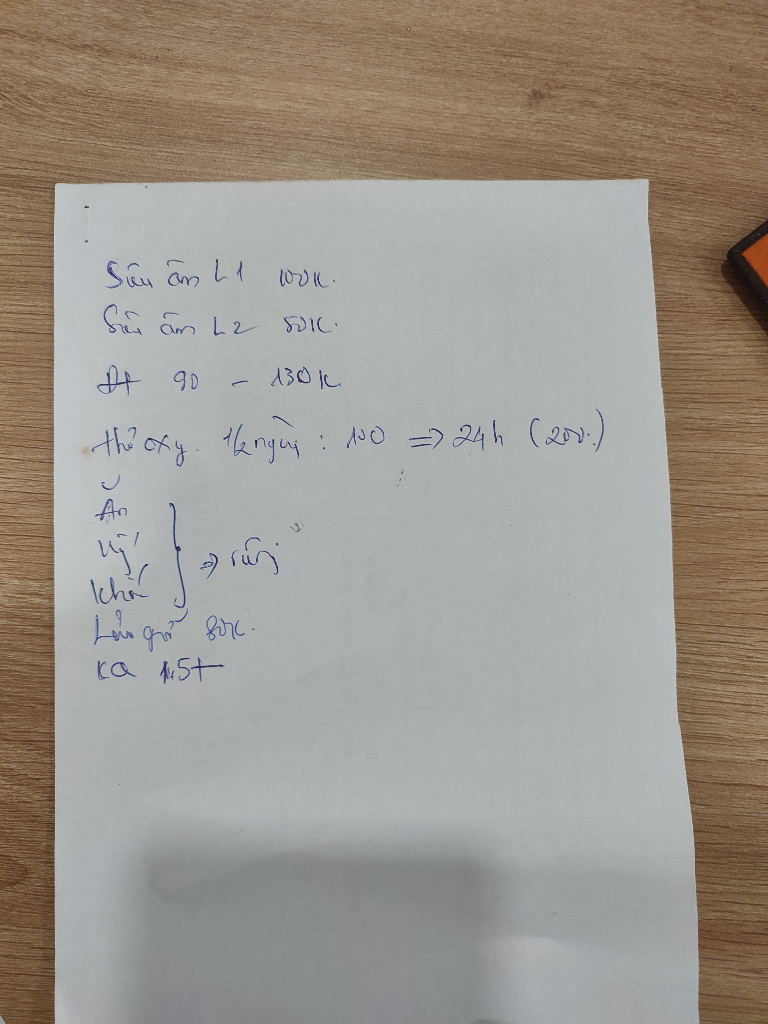 Siêu âm L1 100K.
Siêu âm L2 50K.
Đt 90 - 130K
thở oxy. 1/2 ngày : 100 => 24h (200.)
Ăn
Ký
khối } => riêng
80K.
Ka 1.5t